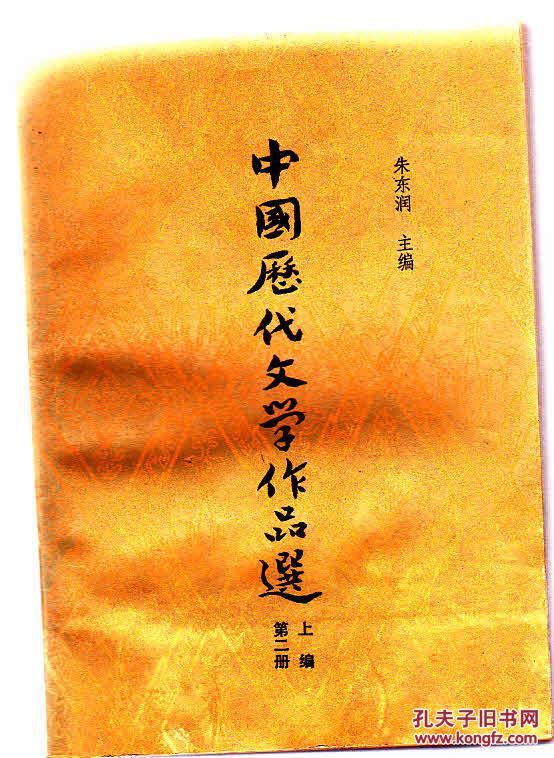 朱东润 主编
中國歷代文学作品選
上编
第二册
孔夫子旧书网
www.kongfz.com